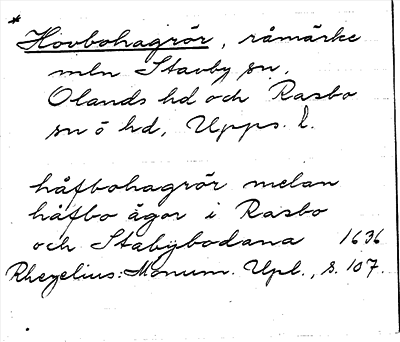 *
Hovbohagrör, råmärke
mln Stavby sn,
Olands hd och Rasbo
sn o hd, Upps. l.
håfbohagrör melan
håfbo ägor i Rasbo
och Stabybodana 1636
Rhezelius: Monum. Upl., s. 107.